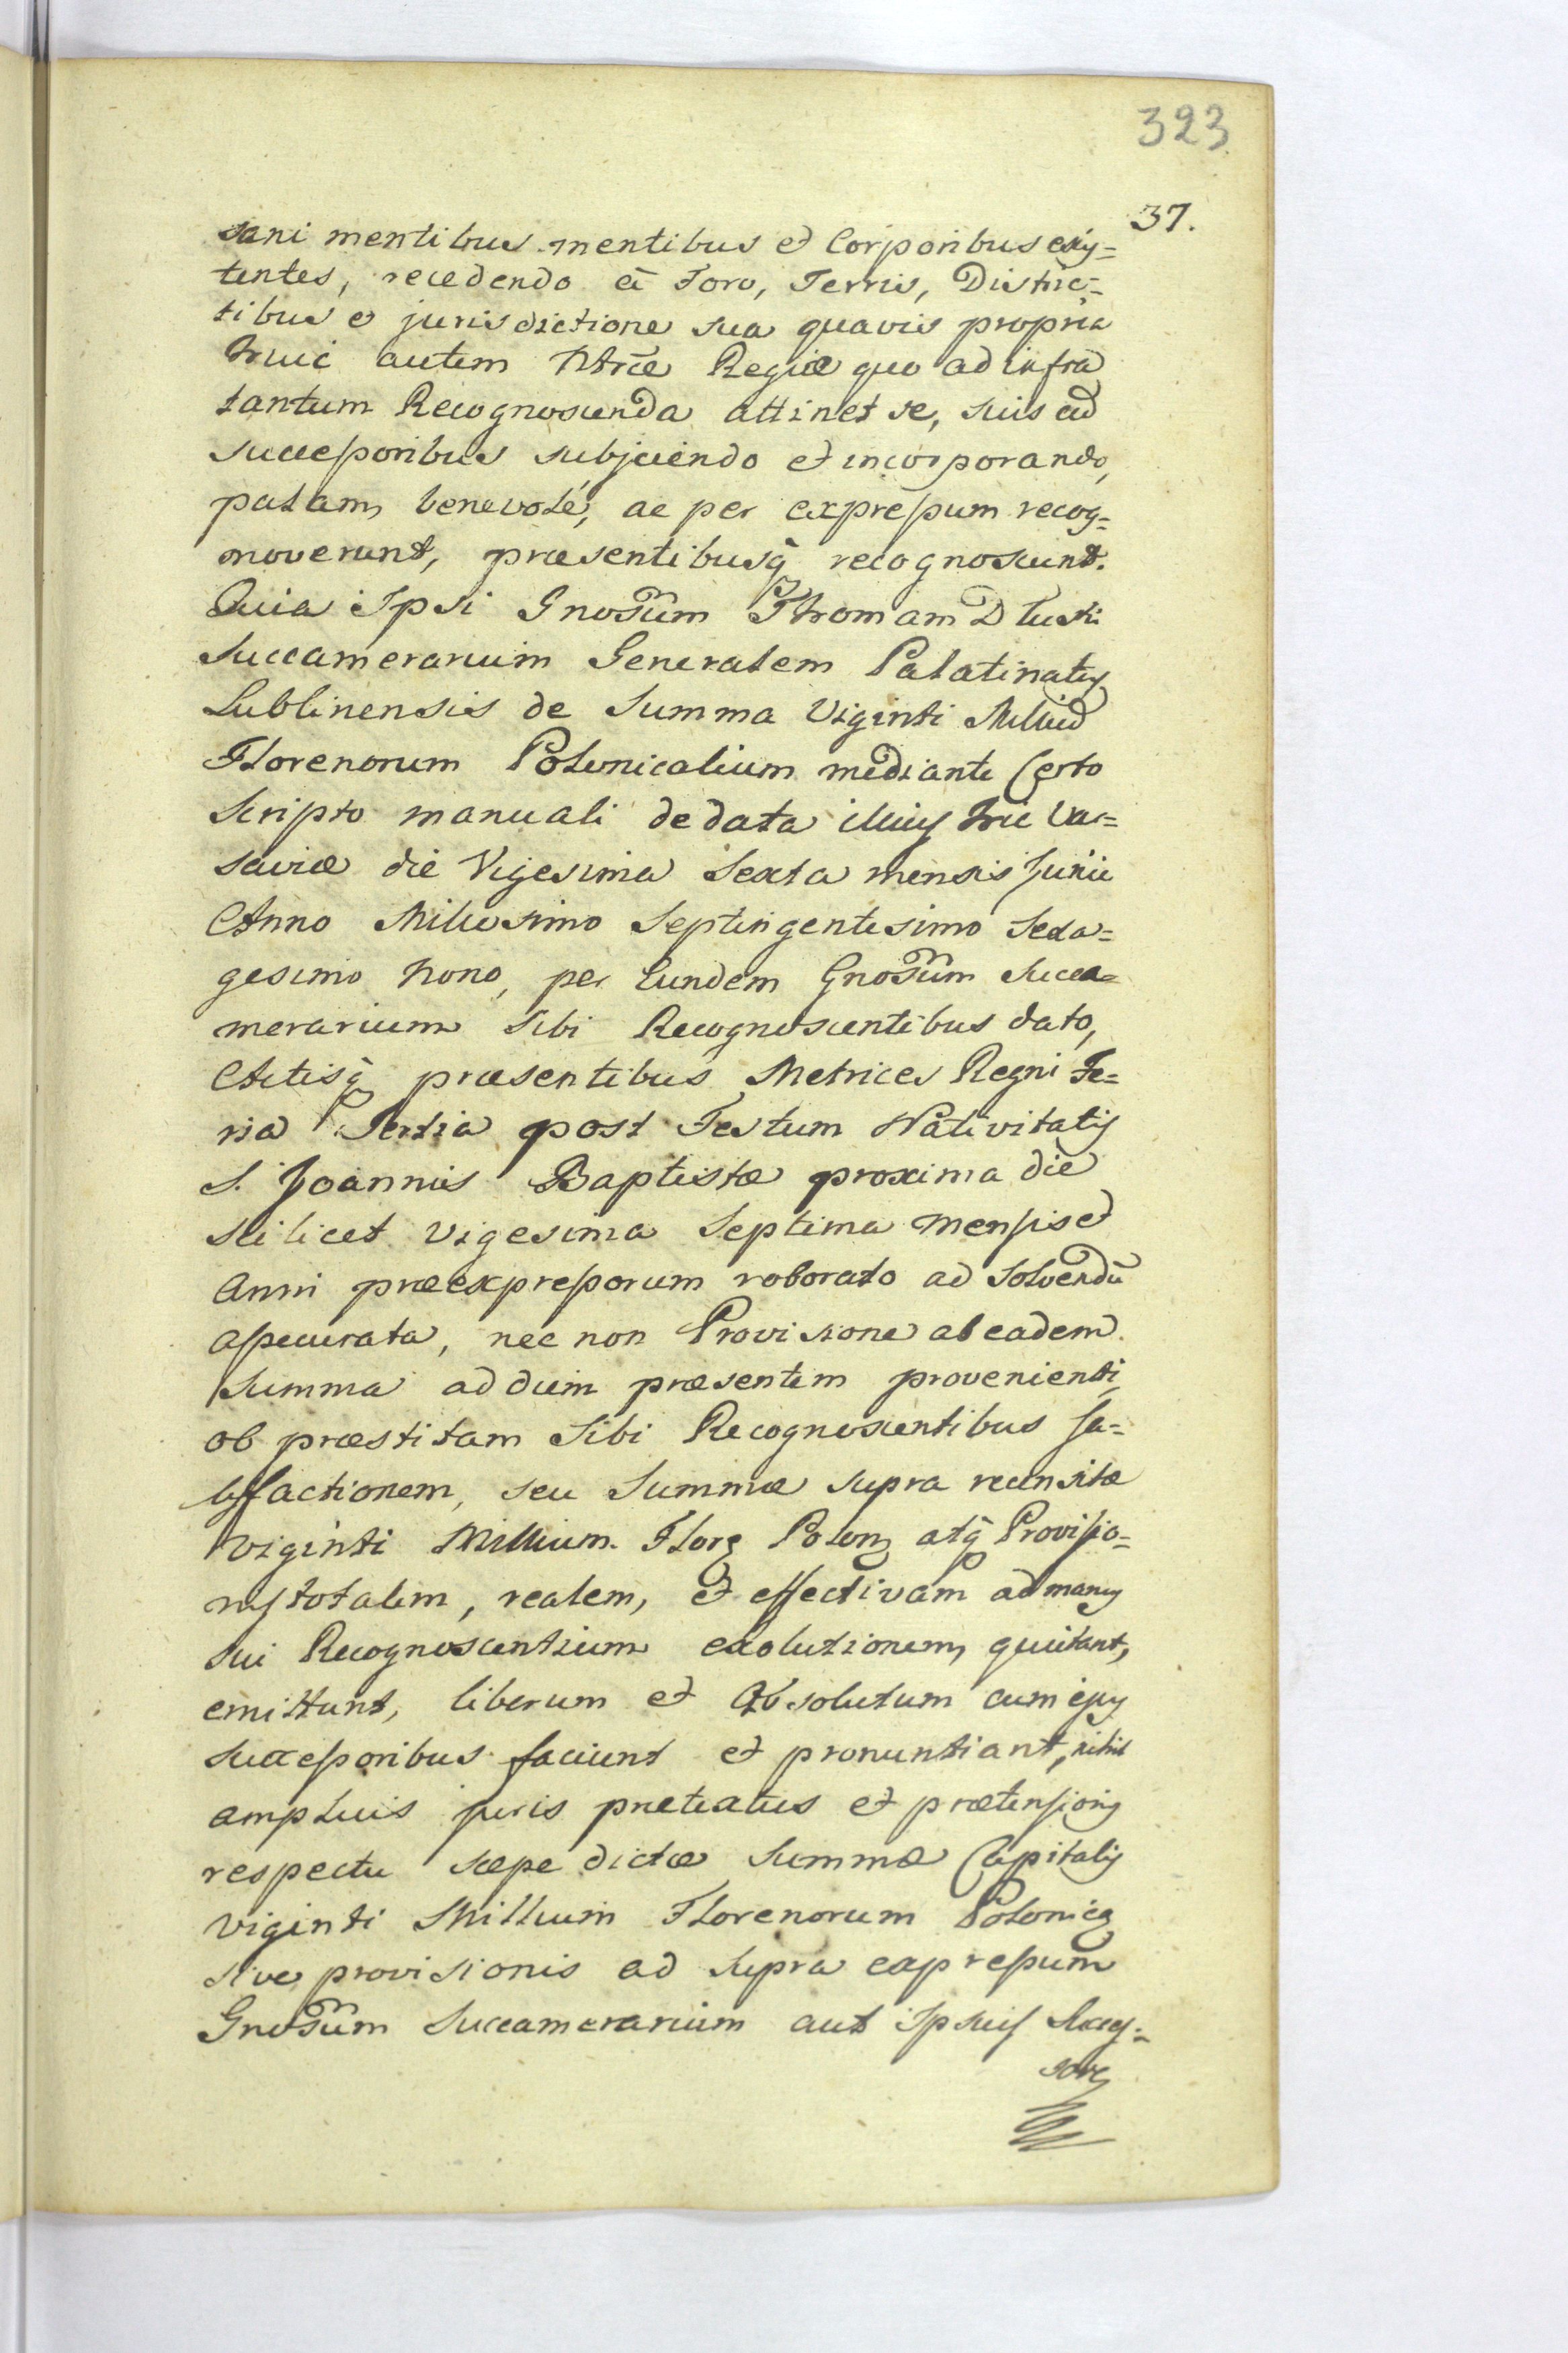 323
37.
sani mentibus mentibus et Corporibus exis=
tentes, recedendo à Foro, Terris, Distric=
tibus et jurisdictione sua quavis propria
huic autem Mtricæ Regiæ quo ad infra
tantum Recognoscenda attinet se, suis cũ
successoribus subjiciendo et incorporando,
palam, benevolé, ac per expressum recog=
noverunt, præsentibusq̃ recognoscunt.
Quia Ipsi Gnosũm Thomam Dłuski
Succamerarium Generalem Palatinatus
Lublinensis de Summa Viginti Milliũ
Florenorum Polonicalium mediante Certo
Scripto manuali de data illius hic Var=
saviæ die Vigesima Sexta mensis Junii
Anno Millesimo Septingentesimo Sexa=
gesimo Nono, per Eundem Gnosũm Succa=
merarium Sibi Recognoscentibus dato,
Actisq̃ præsentibus Metrices Regni Fe=
ria Tertia post Festum Nativitatis
S. Joannis Baptistæ proxima die
scilicet Vigesima Septima mensis et
Anni præexpressorum roborato ad Solvendũ
assecurata, nec non Provisione ab eadem
Summa ad diem præsentem provenienti,
ob præstitam Sibi Recognoscentibus Sa=
tisfactionem, seu Summæ supra recensitæ
Viginti Millium Florȝ Polonȝ atq̃ Provisio=
nis totalem, realem, et effectivam ad manus
sui Recognoscentium exolutionem, quitant,
emittunt, liberum et Absolutum cum ejus
successoribus faciunt et pronuntiant, nihil
amplius juris prætextus et prætensionis
respectu sæpe dictæ Summæ Capitalis
Viginti Millium Florenorum Polonicȝ
sive provisionis ad supra expressum
Gnosũm Succamerarium aut ipsius Succes=
sores